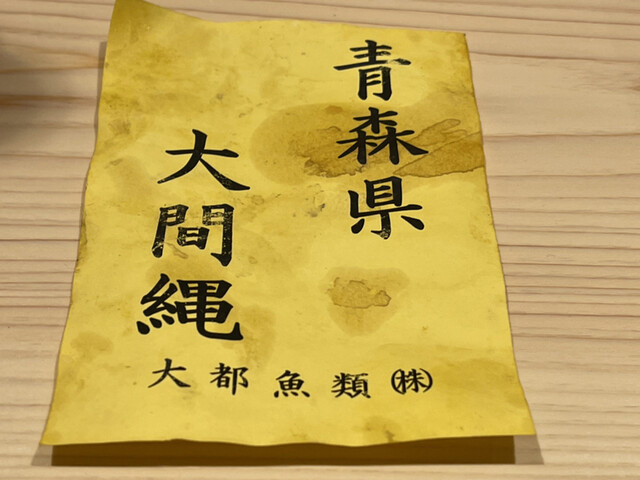 青森県
大間縄
大都魚類㈱